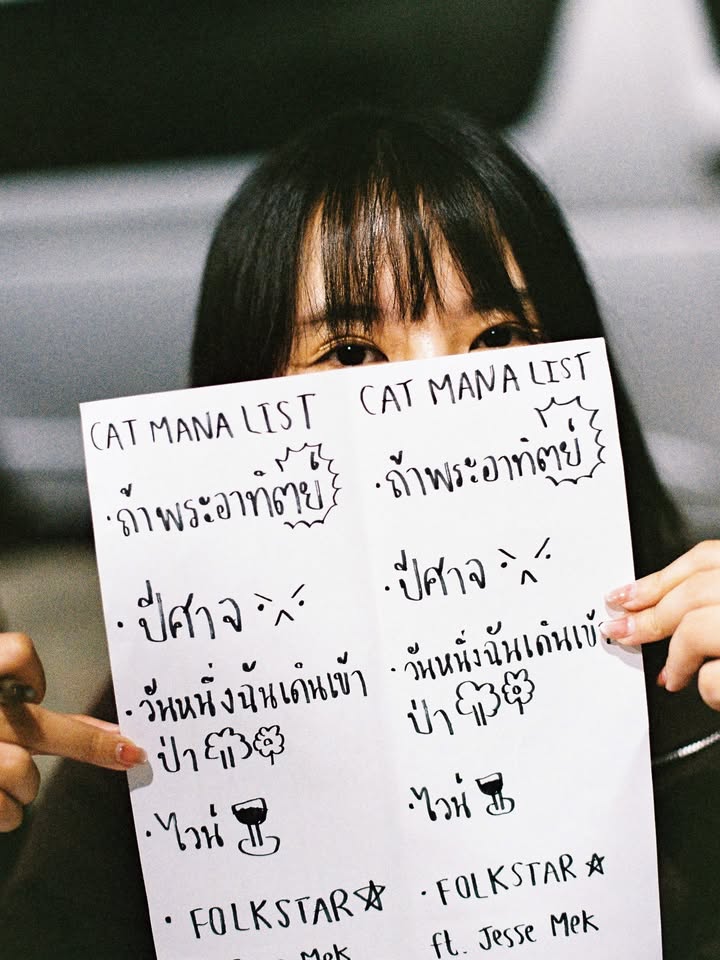 CAT MANA LIST
· ถ้าพระอาทิตย์
· ปีศาจ
· วันหนึ่งฉันเดินเข้า
ป่า
· ไวน์
· FOLKSTAR
Mek
CAT MANA LIST
· ถ้าพระอาทิตย์
· ปีศาจ
· วันหนึ่งฉันเดินเข้า
ป่า
· ไวน์
· FOLKSTAR
ft. Jesse Mek